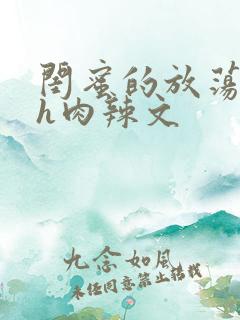 闺蜜的放荡
h肉辣文
九念如風
未经同意禁止转载